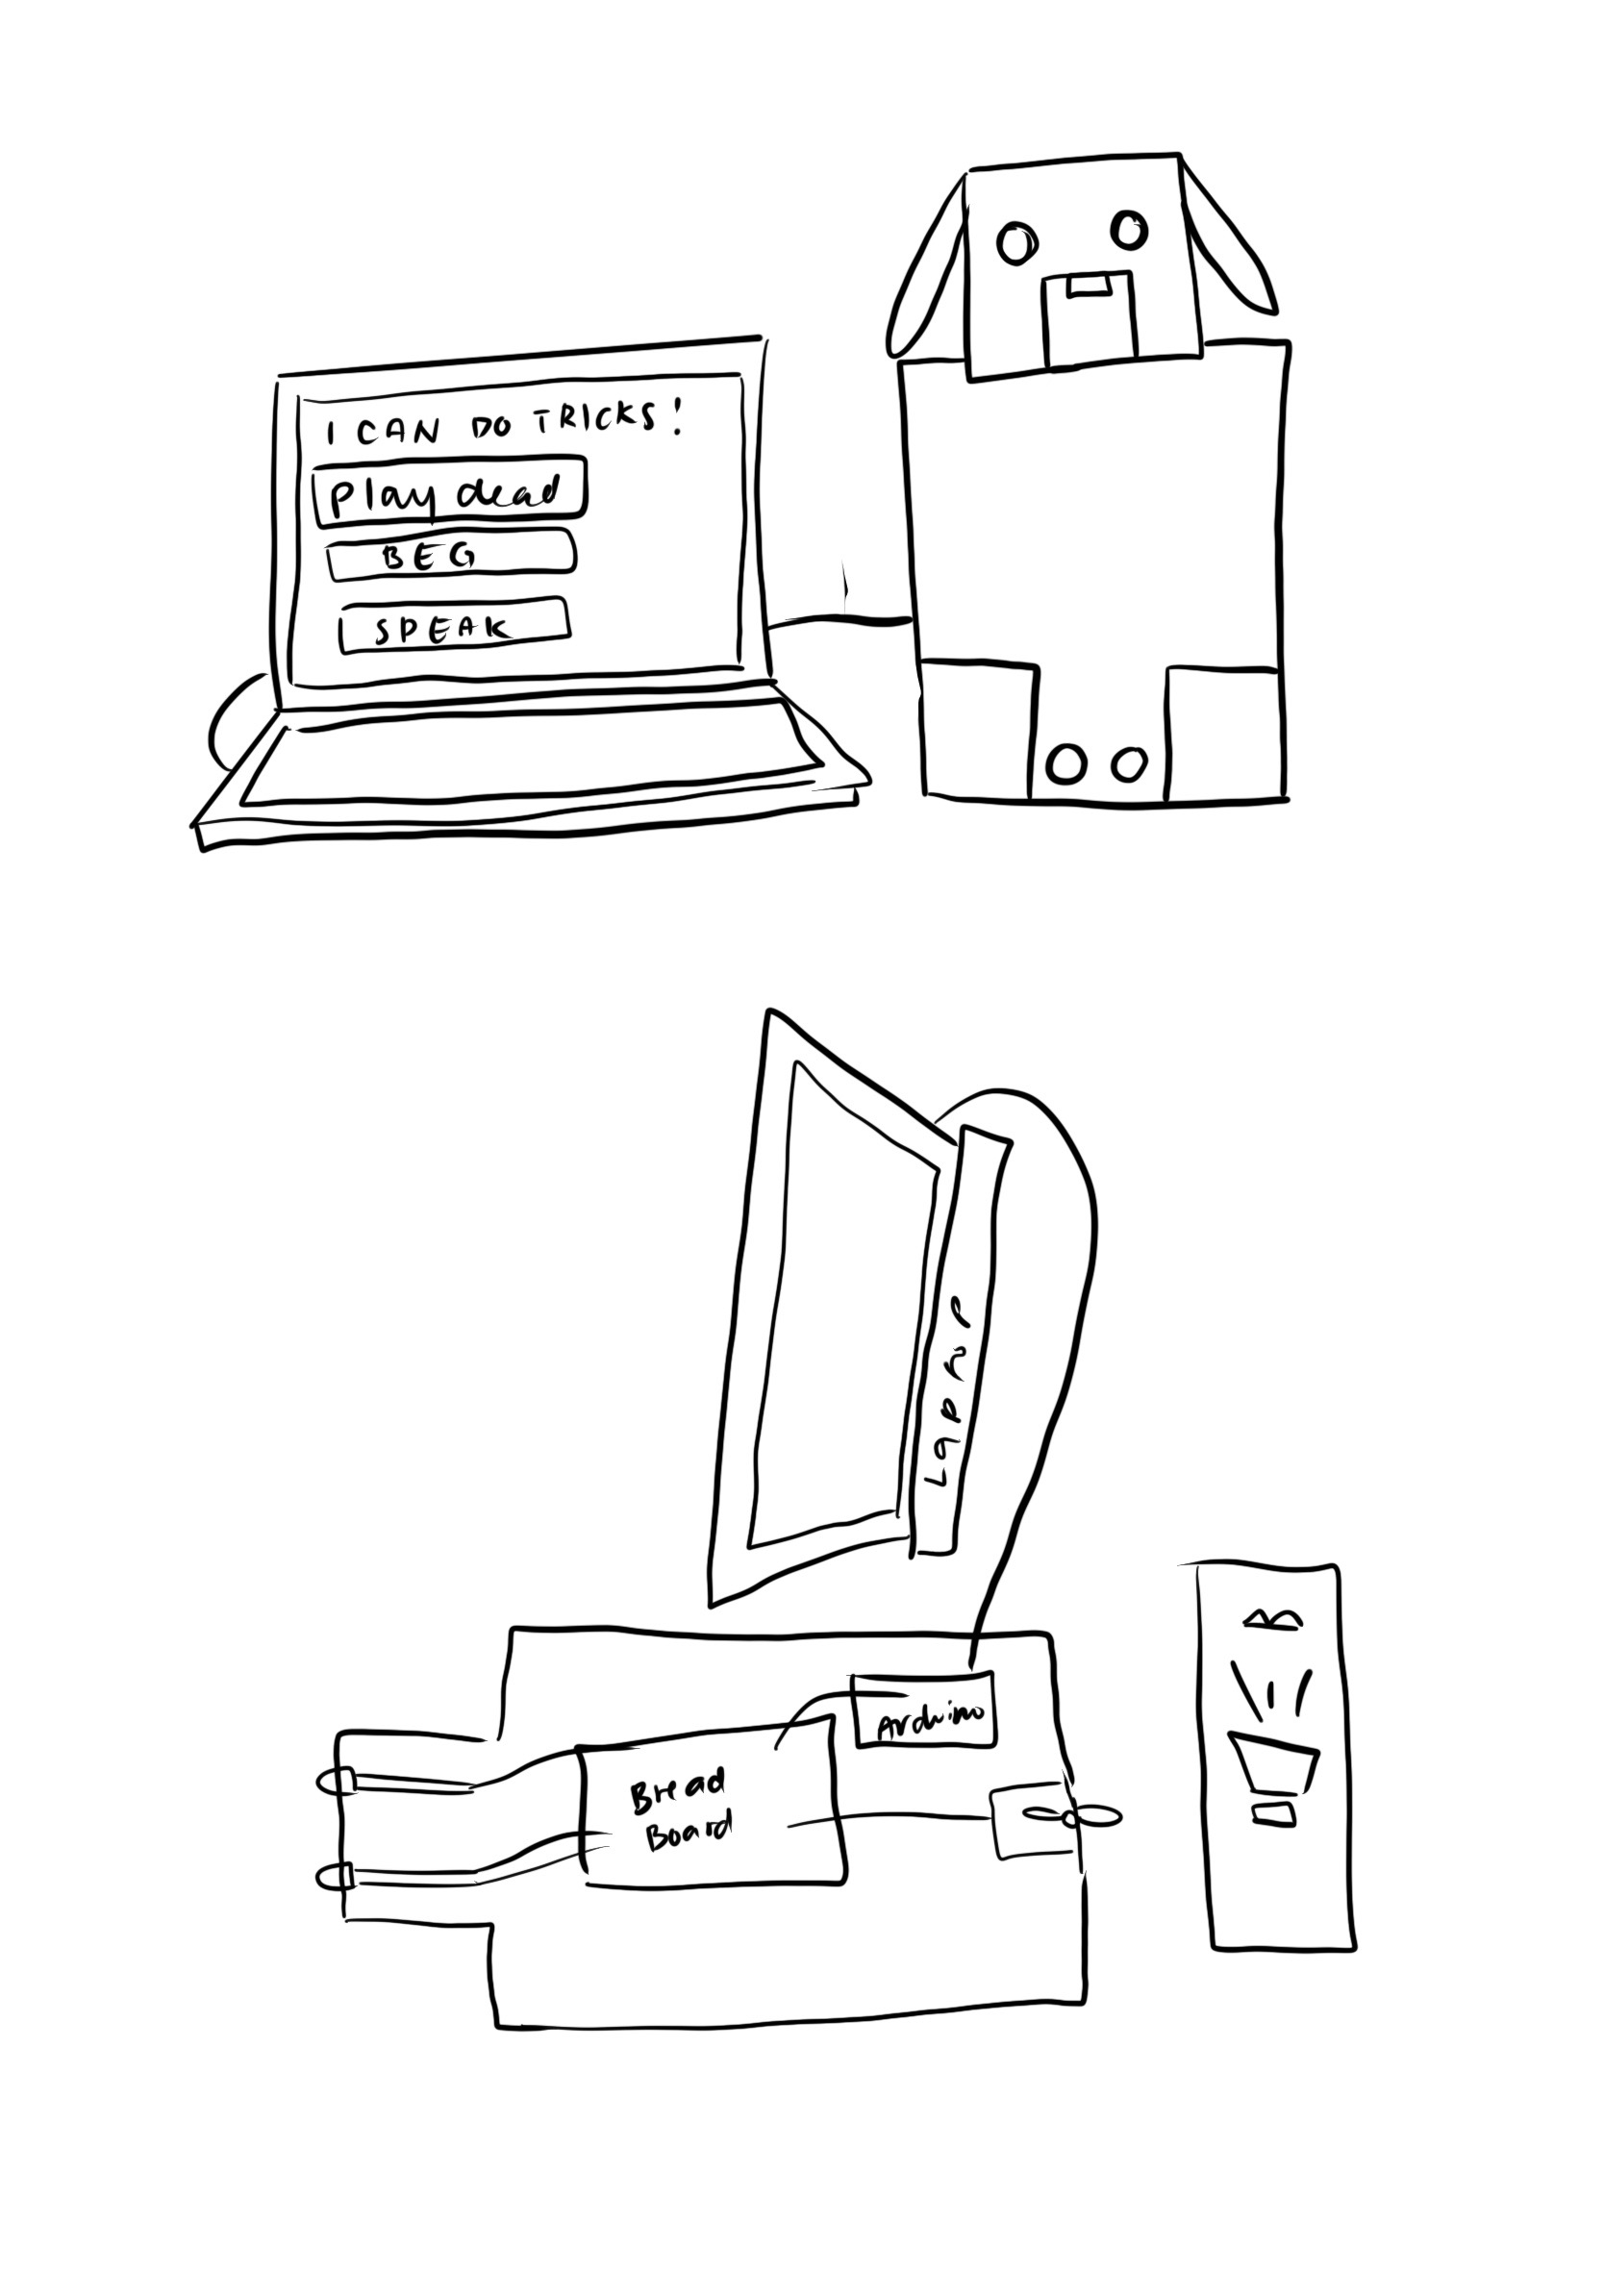 I CAN DO TRICKS!
Play dead
BEG
SPEAK
LAPTOP
Arduino
Bread
Board